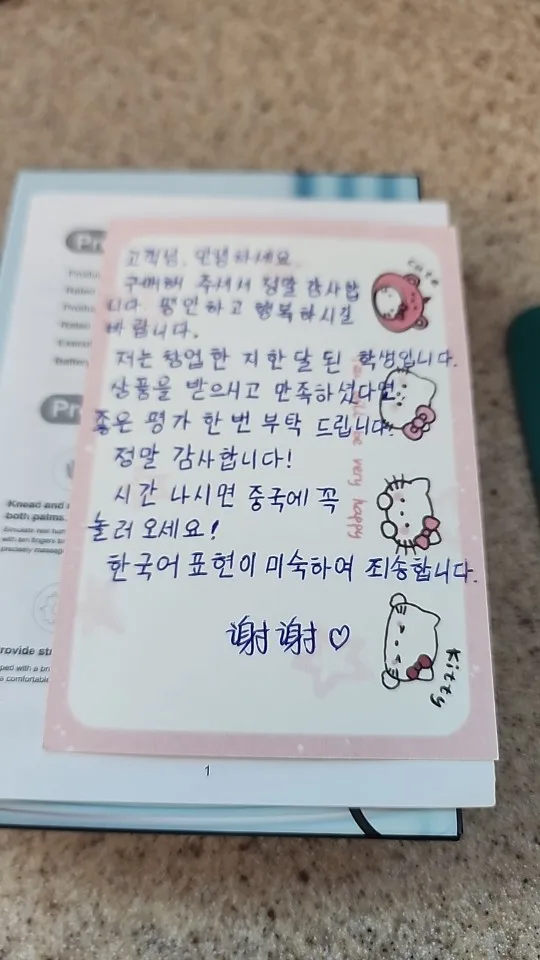 고객님, 안녕하세요.
구매해 주셔서 정말 감사합
니다. 평안하고 행복하시길
바랍니다.
저는 창업한 지 한 달 된 학생입니다.
상품을 받으시고 만족하셨다면
좋은 평가 한 번 부탁 드립니다.
정말 감사합니다!
시간 나시면 중국에 꼭
놀러 오세요!
한국어 표현이 미숙하여 죄송합니다.
谢谢♡
cute
very happy
Kitty
Knead and
both palms.
1